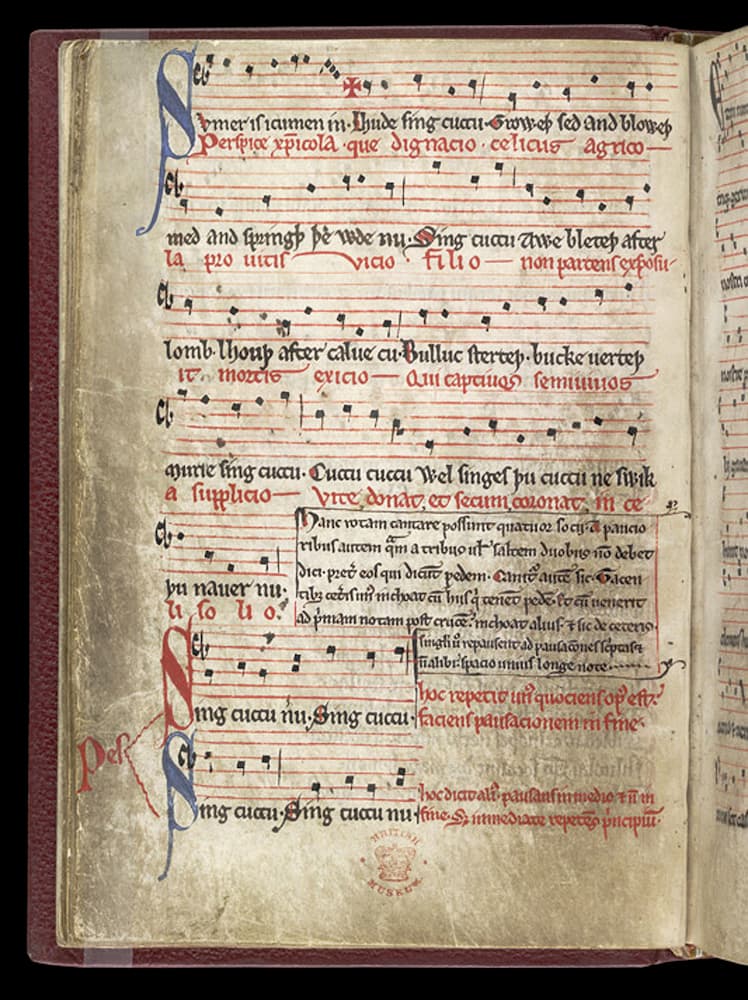 Svmer is icumen in. Lhude sing cuccu. Groweþ sed and bloweþ
Perspice xp̄icola. que dignacio. celicus agrico
med and springþ þe wde nu. Sing cuccu Awe bleteþ after
la pro uitis vicio filio non parcens exposu
lomb. lhouþ after calue cu. Bulluc sterteþ. bucke uerteþ
it mortis exicio Qui captiuos semiuiuos
murie sing cuccu. Cuccu cuccu Wel singes þu cuccu ne swik
a supplicio Vite donat, et secum coronat, in ce
þu nauer nu.
li so li o.
Hanc rotam cantare possunt quatuor socii. A paucio
ribus autem qͣm a tribus uͭl saltem duobus nō debet
dici. pretͥ eos qui dicūt pedem. Canitᷣ autē sic. Tacen
tibȝ ceteris unꝰ inchoat cū hiis qͥ tenēt pedē. Et cū uenerit
ad pͥmam notam post crucē. inchoat alius. ⁊ sic de ceteris.
singli ū repausent ad pausaciones scͥptas ⁊
nͦ alibi. spacio unius longe note
Sing cuccu nu. Sing cuccu.
hoc repetit unꝰ quociens opꝰ est.
faciens pausacionem in fine.
Pes
Sing cuccu. Sing cuccu nu
hoc dicit aliꝰ. pausans in medio ⁊ nͦ in
fine. Sꝫ immediate repetēs pͥncipiū.
BRITISH
MUSEUM